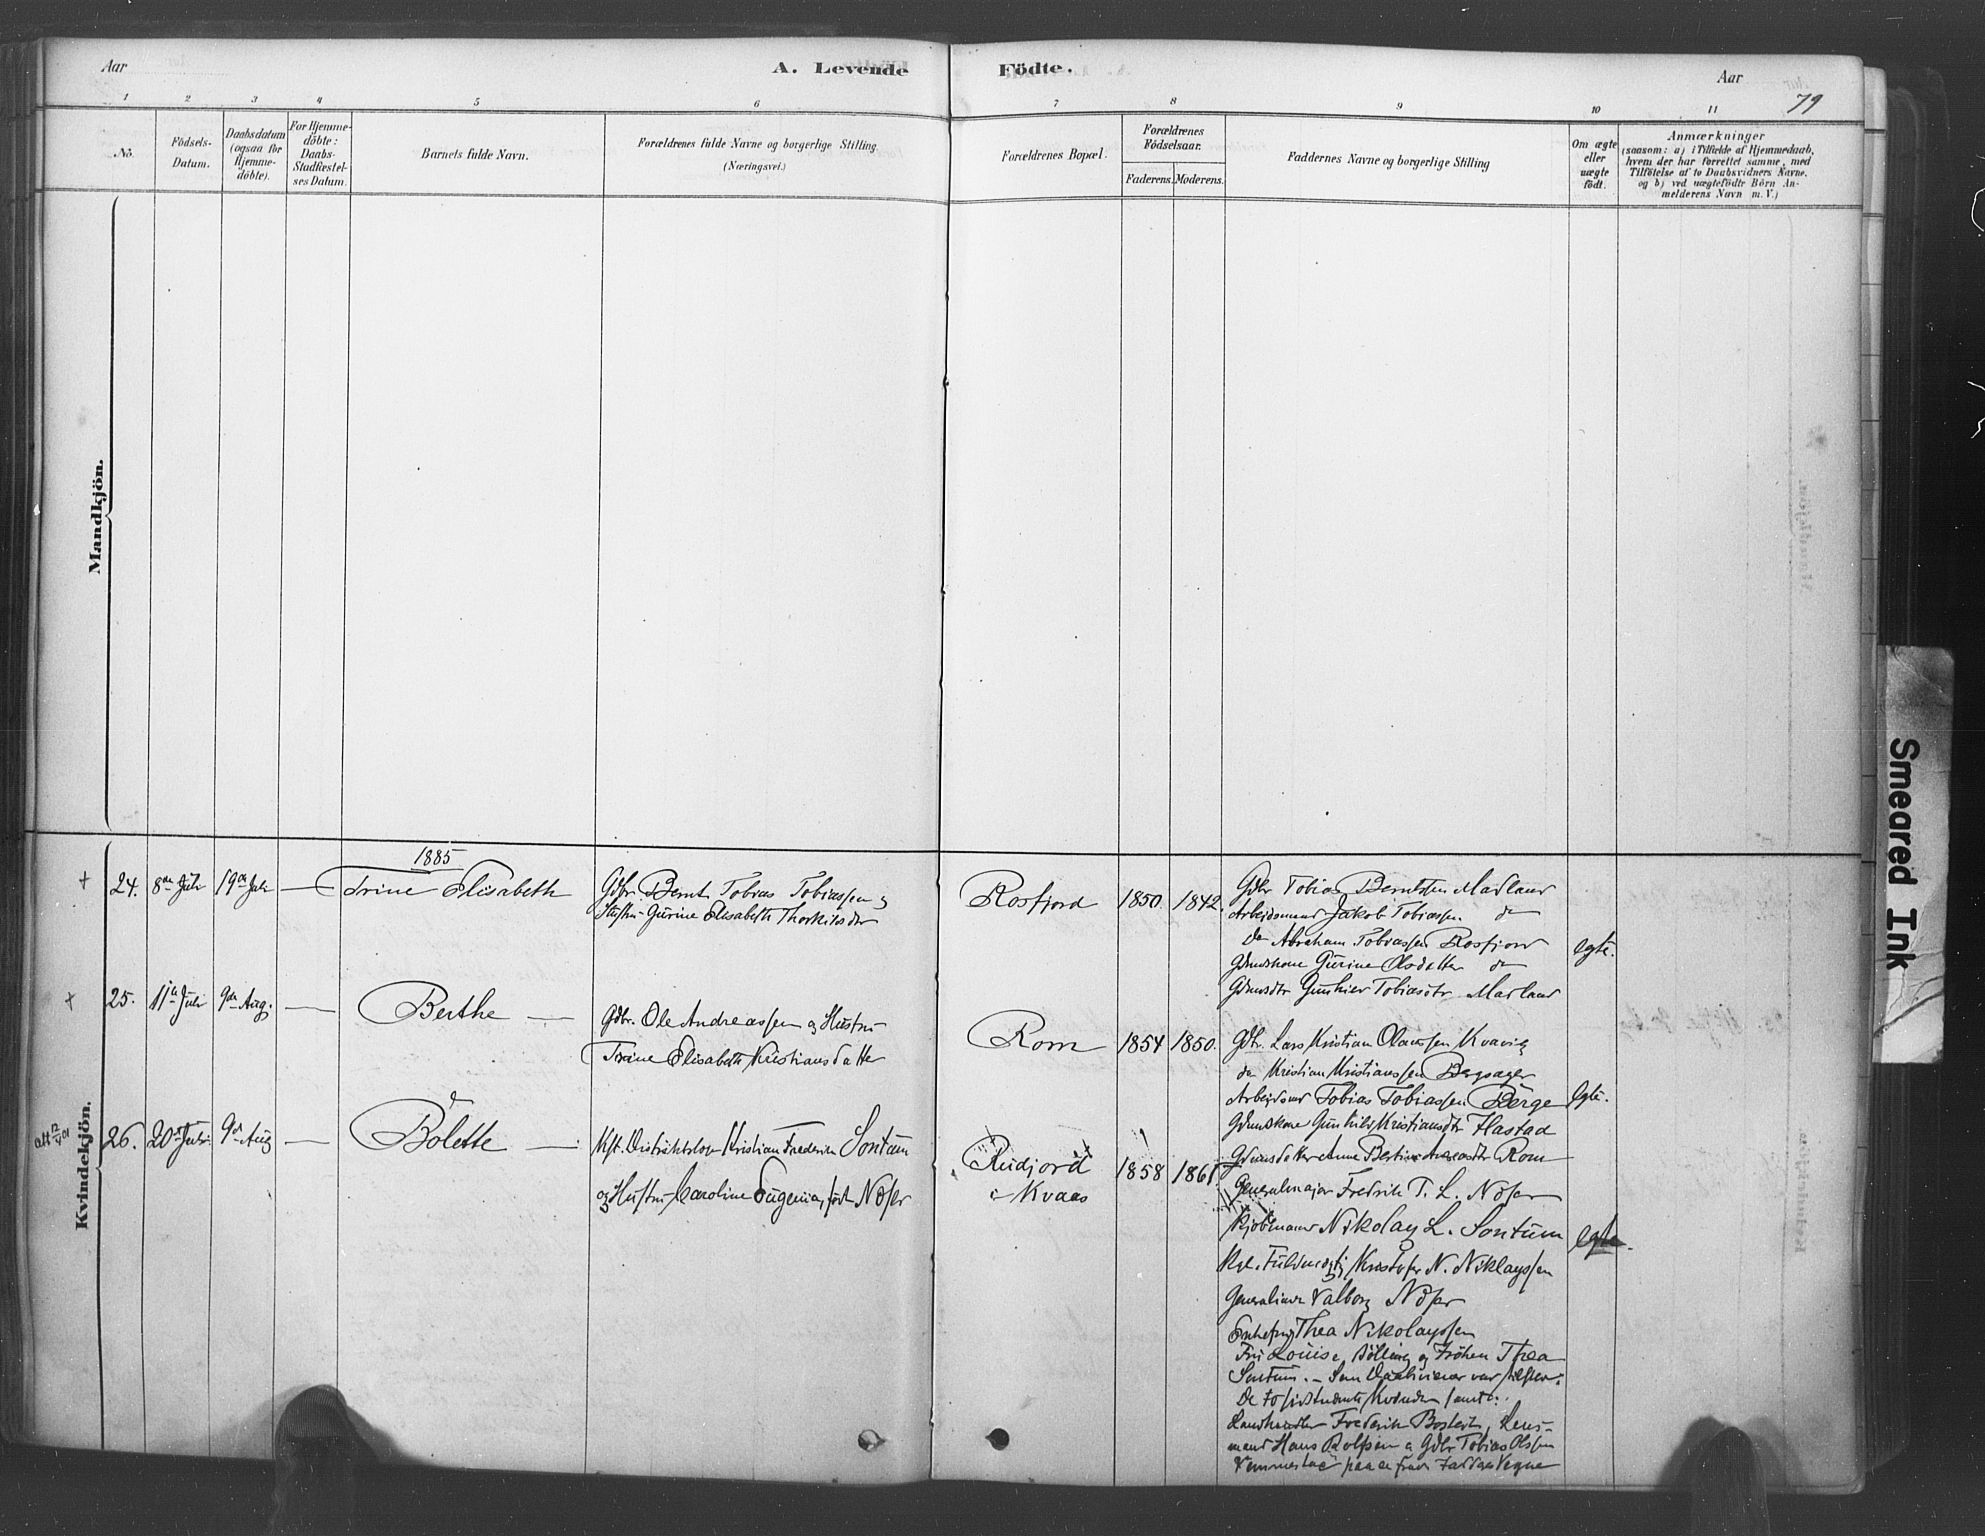 Aar
A. Levende
Födte.
Aar
79
1 2 3 4 5 6 7 8 9 10 11
No.
Födsels-
Datum.
Daabsdatum
(ogsaa for
Hjemme-
döbte).
For Hjemme-
döbte:
Daabs-
Stadfestel-
ses Datum.
Barnets fulde Navn.
Forældrenes fulde Navne og borgerlige Stilling.
(Næringsvei.)
Forældrenes Bopæl.
Forældrenes
Födselsaar.
Faderens. Moderens.
Faddernes Navne og borgerlige Stilling
Om ægte
eller
uægte
födt.
Anmærkninger
(saasom: a) i Tilfælde af Hjemmedaab,
hvem der har forrettet samme, med
Tilföielse af to Daabsvidners Navne,
og b) ved uægtefödte Börn An-
melderens Navn m. V.)
Mandkjön.
Kvindekjön.
1885
24. 8de Juli 19de Juli — Trine Elisabeth
Gdbr. Bernt Tobias Tobiassen og
Hustru Gurine Elisabeth Thorkilsdtr
Rosfjord 1850 1842.
Gdbr Tobias Berntsen Marland
Arbeidsmand Jakob Tobiassen do
do Abraham Tobiassen Rosfjord
Gdmdskone Gurine Olsdatter do
Gdmdsdtr Gunhild Tobiasdtr Marland
Egte.
25. 11te Juli 9de Aug. — Berthe —
Gdbr. Ole Andreassen og Hustru
Trine Elisabeth Kristiansdatter
Rom 1854 1850.
Gdbr. Lars Kristian Olaussen Kvavig
do Kristian Kristianssen Bergsager
Arbeidsmd Tobias Tobiassen Berge
Gdmdskone Gunhild Kristiansdtr Hastad
Gdmdsdatter Anne Bertine Rom
Egte.
26. 20de Juli 9de Aug — Bolette —
Kst. Distriktslæge Kristian Frederik Sontum
og Hustru Caroline Eugenia, født Nöser
Reidjord
i Kvaas
1858 1861.
Generalmajor Fredrik T. L. Nöser
Kjöbmand Nikolay L. Sontum
Kgl. Fuldmægtig Kristofer N. Niklayssen
Generalinde Valborg Nöser
Enkefru Thea Nikolayssen
Fru Louise Bölling og Fröken Thea
Sontum. —
De to sidstnævnte Kvinder samt:
Landhandler Fredrik Bostedt, Lens-
mand Hans Rolfsen og Gdbr Tobias Olsen
Vemmestad paa de fravær. Faddres Vegne
Egte.
Smeared Ink